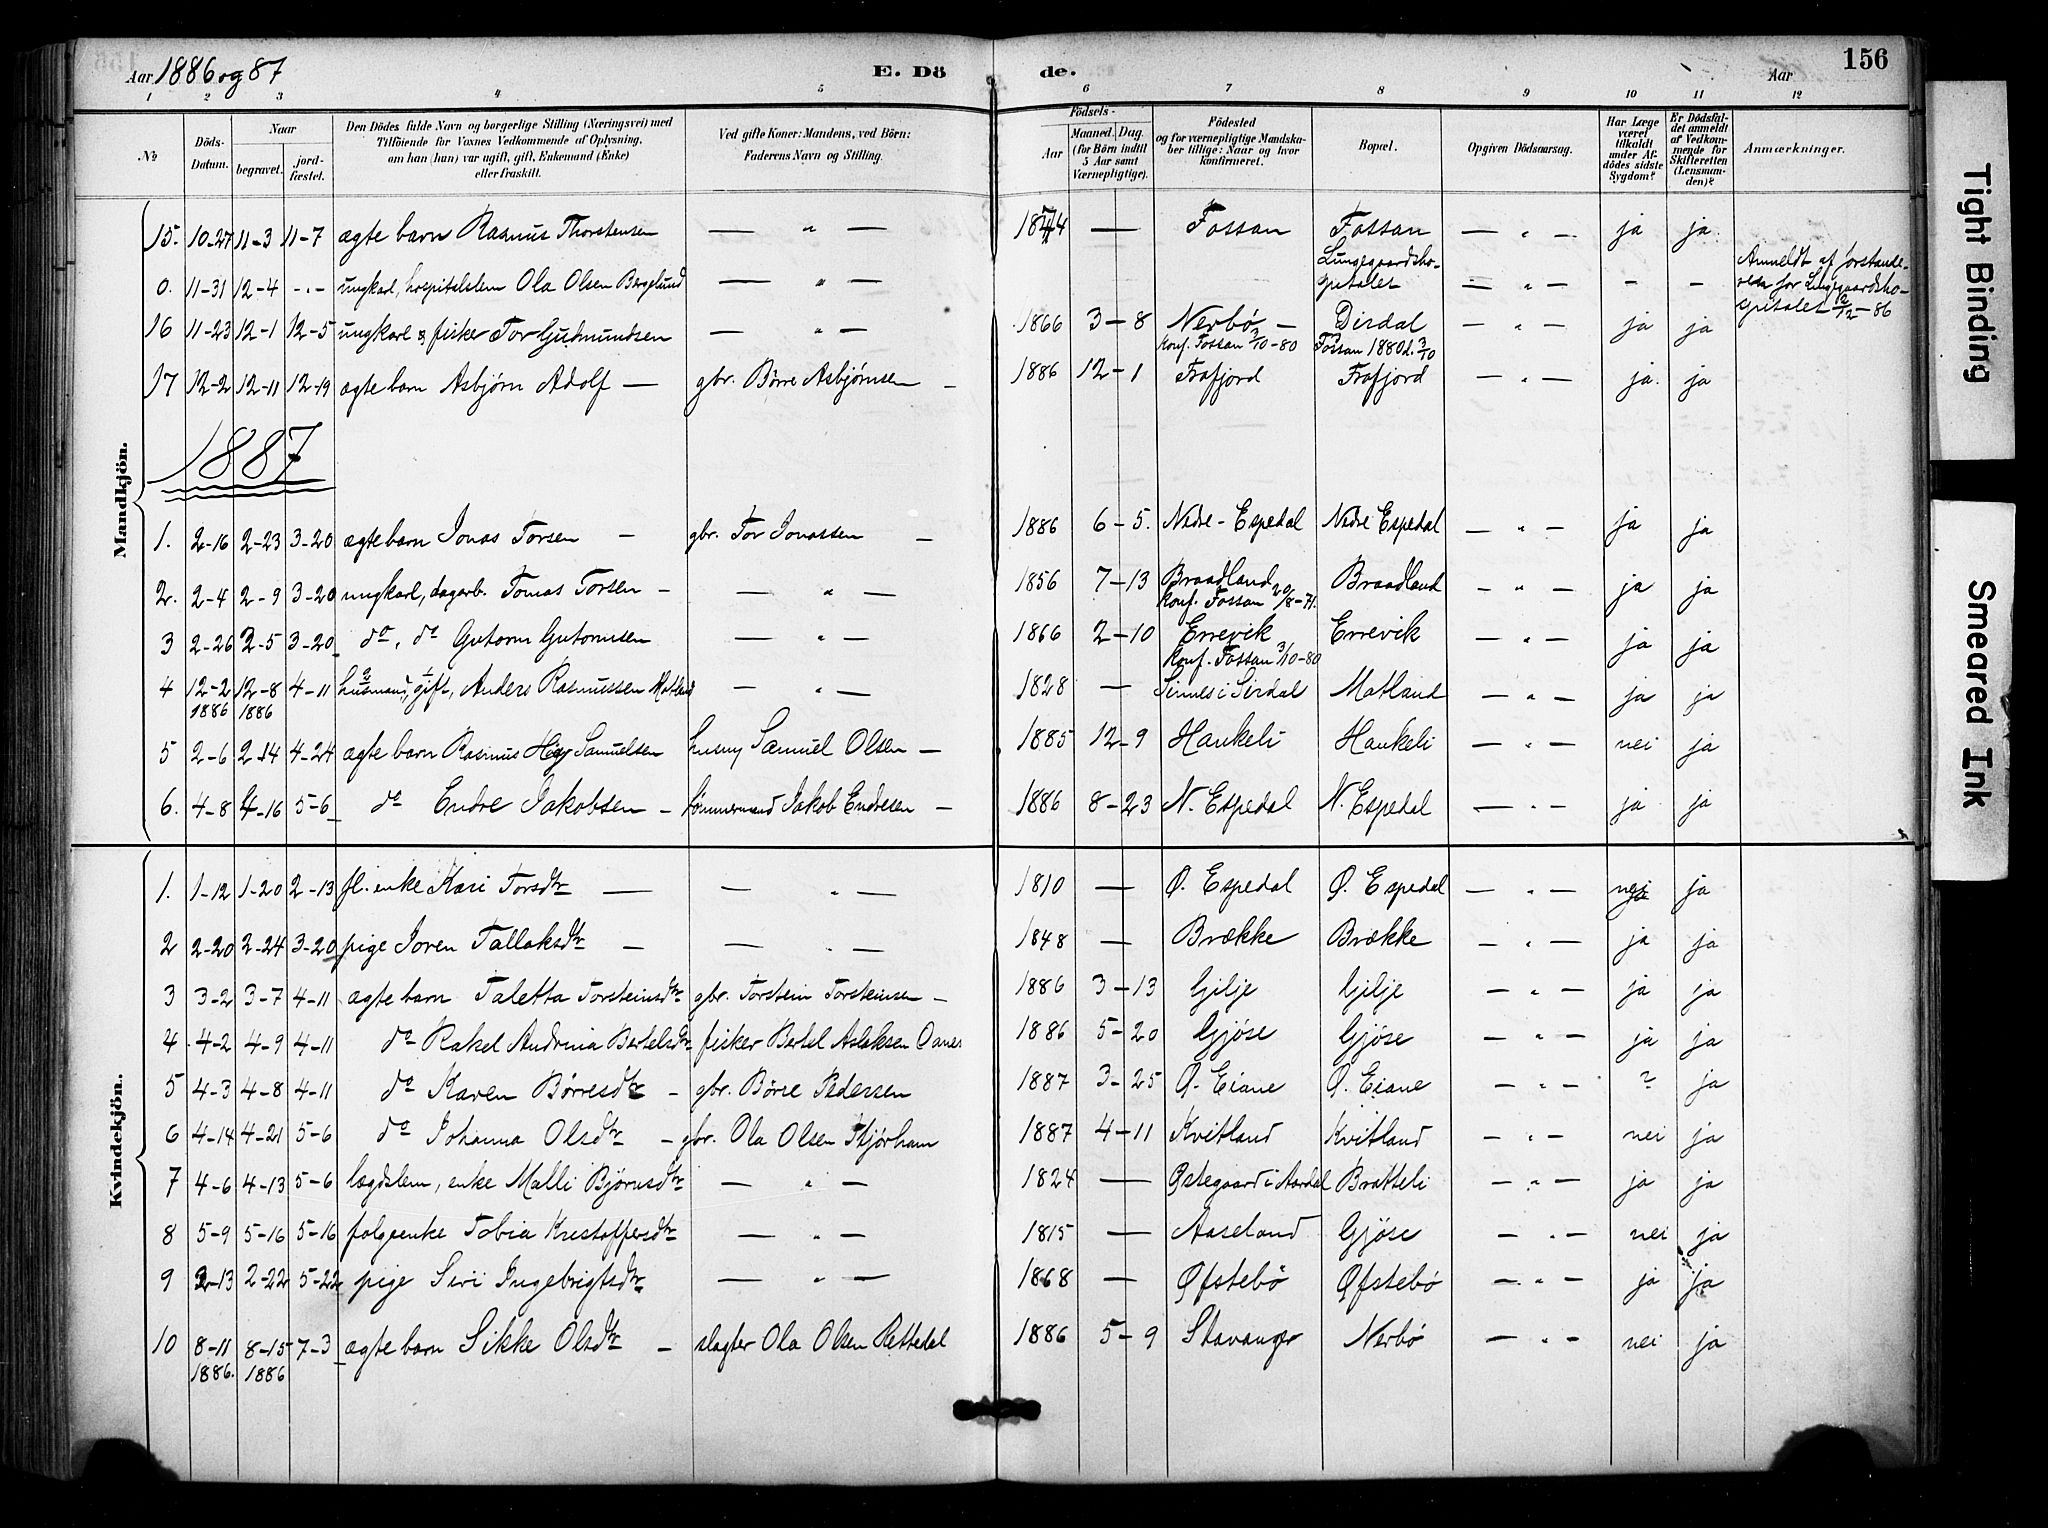 Aar 1886 og 87 E. Dö de. Aar 156
1 2 3 4 5 6 7 8 9 10 11 12
№ Döds-Datum. Naar begravet. jord-fæstet. Den Dödes fulde Navn og borgerlige Stilling (Næringsvei) med Tilföiende for Voxnes Vedkommende af Oplysning, om han (hun) var ugift, gift, Enkemand (Enke) eller fraskilt. Ved gifte Koner: Mandens, ved Börn: Faderens Navn og Stilling. Födsels- Aar Maaned. Dag. (for Börn indtil 5 Aar samt Værnepligtige). Födested og for værnepligtige Mandskaber tillige: Naar og hvor konfirmeret. Bopæl. Opgiven Dödsaarsag. Har Læge været tilkaldt under Afdödes sidste Sygdom? Er Dödsfaldet anmeldt af Vedkommende for Skifteretten (Lensmanden)? Anmærkninger.
Mandkjön.
15. 10-27 11-3 11-7 ægte barn Rasmus Thorstensen — " — — Fossan Fossan — " — ja ja
0. 11-31 12-4 -"- ungkarl, hospitalslem Ola Olsen Bergelund — " — Lungegaardshospitalet — " — - - Anmeldt af forstanderen for Lungegaardshospitalet 2/12-86
16 11-23 12-1 12-5 ungkarl & fisker Tor Gudmundsen — " — 1866 3-8 Nerbø — konf. Fossan 3/10-80 Dirdal Fossan 1880 d. 3/10 — " — ja ja
17 12-2 12-11 12-19 ægte barn Asbjørn Adolf — gbr. Børre Asbjørnsen — 1886 12-1 Frafjord Frafjord — " — ja. ja
1887
1. 2-16 2-23 3-20 ægte barn Jonas Torsen — gbr. Tor Jonassen — 1886 6-5. Nedre-Espedal Nedre Espedal — " — ja ja
2. 2-4 2-9 3-20 ungkarl, dagarb. Tomas Torsen — — " — 1856 7-13 Braadland konf. Fossan 20/8-71. Braadland — " — ja ja
3 2-26 2-5 3-20 do, do Gutorm Gutormsen — " — 1866 2-10 Errevik konf. Fossan 3/10-80 Errevik — " — ja ja
4 12-2 1886 12-8 1886 4-11 husmand, gift, Anders Rasmussen Matland — " — 1828 — Sinnes i Sirdal Matland — " — ja ja
5 2-6 2-14 4-24 ægte barn Rasmus Samuelsen husm Samuel Olsen — 1885 12-9 Haukeli Haukeli — " — nei ja
6. 4-8 4-16 5-6 do Endre Jakobsen — tømmermand Jakob Endresen — 1886 8-23 N. Espedal N. Espedal — " — ja ja
Kvindekjön.
1. 1-12 1-20 2-13 fl. enke Kari Torsdtr — — " — 1810 — Ø. Espedal Ø. Espedal — " — nei ja
2 2-20 2-24 3-20 pige Joren Tallaksdtr — — " — 1848 — Brække Brække — " — ja ja
3 3-2 3-7 4-11 ægte barn Taletta Torsteinsdtr gbr. Torstein Torsteinsen — 1886 3-13 Gilje Gilje — " — ja ja
4 4-2 4-9 4-11 do Rakel Andrina Bertelsdtr fisker Bertel Aslaksen Oanes 1886 5-20 Gjøse Gjøse — " — ja ja
5 4-3 4-8 4-11 do Karen Børresdtr — gbr. Børre Pedersen 1887 3-25 Ø. Eiane Ø. Eiane — " — ? ja
6 4-14 4-21 5-6 do Johanna Olsdtr — gbr. Ola Olsen Skjørham 1887 4-11 Kvitland Kvitland — " — nei ja
7 4-6 4-13 5-6 lægdslem, enke Malli Bjørnsdtr — " — 1824 — Østegaard i Aardal Bratteli — " — ja ja
8 5-9 5-16 5-16 folgeenke Tobia Kristoffersdtr — " — 1815 — Aaseland Gjøse — " — nei ja
9 2-13 2-22 5-22 pige Siri Ingebrigtsdtr — " — 1868 — Øfstebø Øfstebø — " — ja ja
10 8-11 1886. 8-15 1886 7-3 ægte barn Sikke Olsdtr — slagter Ola Olsen Rettedal 1886 5-9 Stavanger Nerbø — " — nei ja
Tight Binding
Smeared Ink